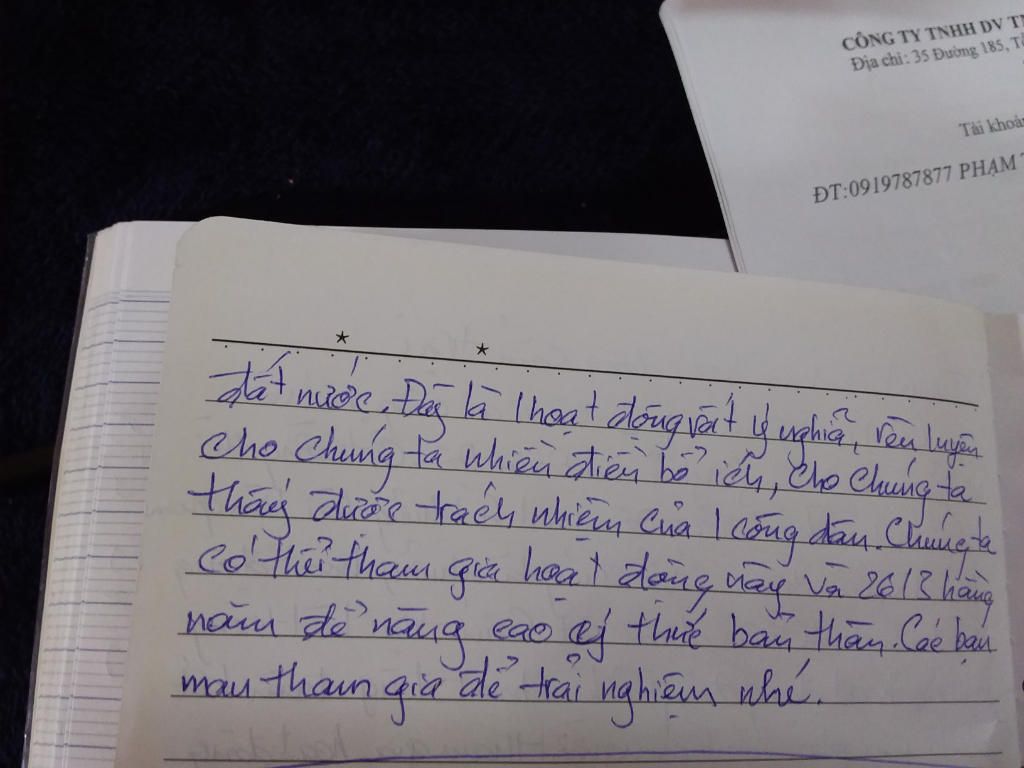 CÔNG TY TNHH DV
Địa chỉ: 35 Đường 185,
Tài khoản
ĐT:0919787877 PHẠM
đất nước. Đây là 1 hoạt động rất ý nghĩa, rèn luyện
cho chúng ta nhiều điều bổ ích, cho chúng ta
thấy được trách nhiệm của 1 công dân. Chúng ta
có thể tham gia hoạt động này và 26/3 hằng
năm để nâng cao ý thức bản thân. Các bạn
mau tham gia để trải nghiệm nhé.